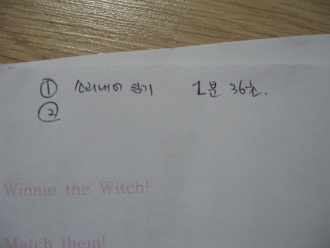 ① 소리내어 읽기 1분 36초.
②
Winnie the Witch!
Match them!